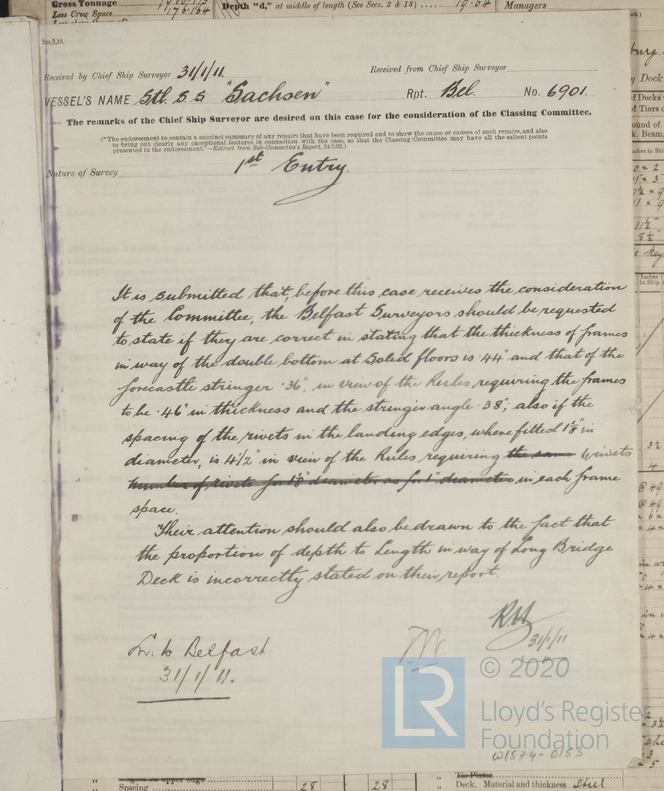 Gross Tonnage
Less Crew Space
176.164
Depth "d," at middle of length (See Secs. 2 & 18) .... 19.64
Managers
Received by Chief Ship Surveyor 31/1/11.
Received from Chief Ship Surveyor
VESSEL'S NAME Stl. S.S "Sachsen" Rpt. Bel. No. 6901.
The remarks of the Chief Ship Surveyor are desired on this case for the consideration of the Classing Committee.
(*The endorsement to contain a succinct summary of any repairs that have been required and to show the cause or causes of such repairs, and also
to bring out clearly any exceptional features in connection with the case, so that the Classing Committee may have all the salient points
presented in the endorsement."—Extract from Sub-Committee's Report, 24/5/92.)
Nature of Survey 1st Entry.
It is submitted that, before this case receives the consideration
of the Committee, the Belfast Surveyors should be requested
to state if they are correct in stating that the thickness of frames
in way of the double bottom at Solid floors is .44" and that of the
forecastle stringer .36", in view of the Rules requiring the frames
to be .46" in thickness and the stringer angle .38"; also if the
spacing of the rivets in the landing edges, where fitted 1⅛" in
diameter, is 4½" in view of the Rules requiring the same 6 rivets
number of rivets for 1⅛" diameter as for 1" diameter in each frame
space.
Their attention should also be drawn to the fact that
the proportion of depth to Length in way of Long Bridge
Deck is incorrectly stated on their report.
31/1/11
Lr. to Belfast
31/1/11.
LR
© 2020
Lloyd's Register
Foundation
W1574-0153
Spacing 28 28
Deck. Material and thickness Steel